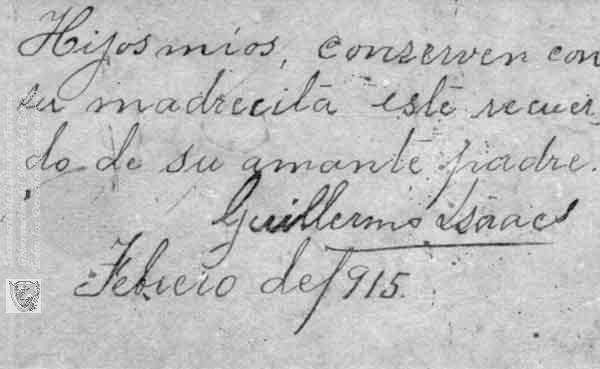 Hijos mios, conserven con
su madrecita este recuer
do de su amante padre.
Guillermo Isaacs
Febrero de 1915.